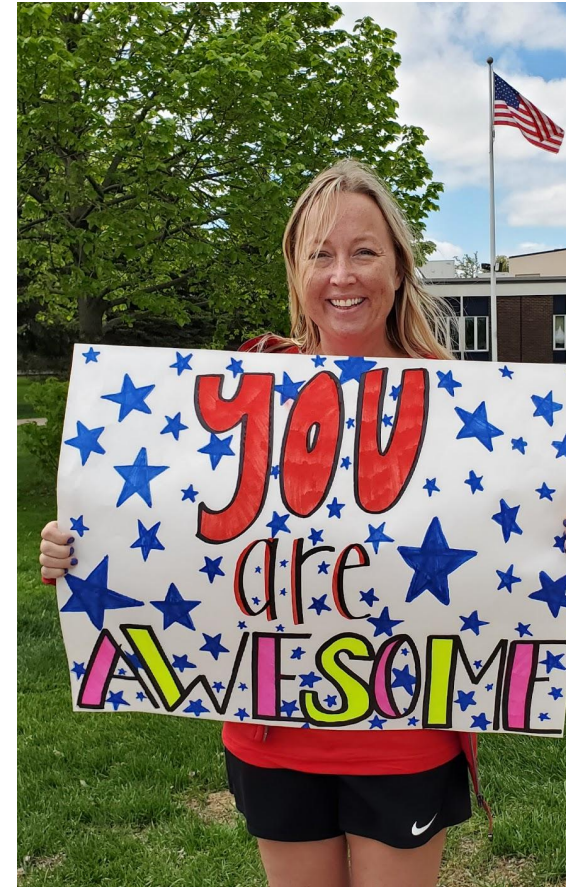 you
are
AWESOME